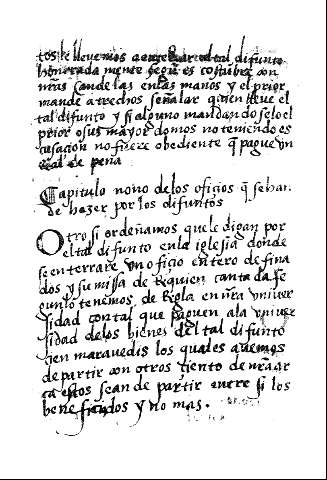 tos le llevemos a enterrar el tal difunto
honrrada mente segun es costūbre con
nr̄as candelas en las manos y el prior
mande a trechos señalar quien lleve el
tal difunto y si alguno mandandoselo el
prior o su mayordomos no teniendo es
cusacion no fuere obediente q̄ pague vn
Real de pena
Capitulo nono delos oficios q̄ se han
de hazer por los difuntos
Otro si ordeñamos que le digan por
el tal difunto en la iglesia donde
se enterrare vn oficio entero de fina
dos y su missa de Requien cantada se
gun lo tenemos de Regla en nr̄a vniver
sidad con tal que paguen a la vniver
sidad de los bienes del tal difunto
çien maravedis los quales avemos
de partir con otros çiento de nr̄a ar
ca estos se an de partir entre si los
beneficiados y no mas.